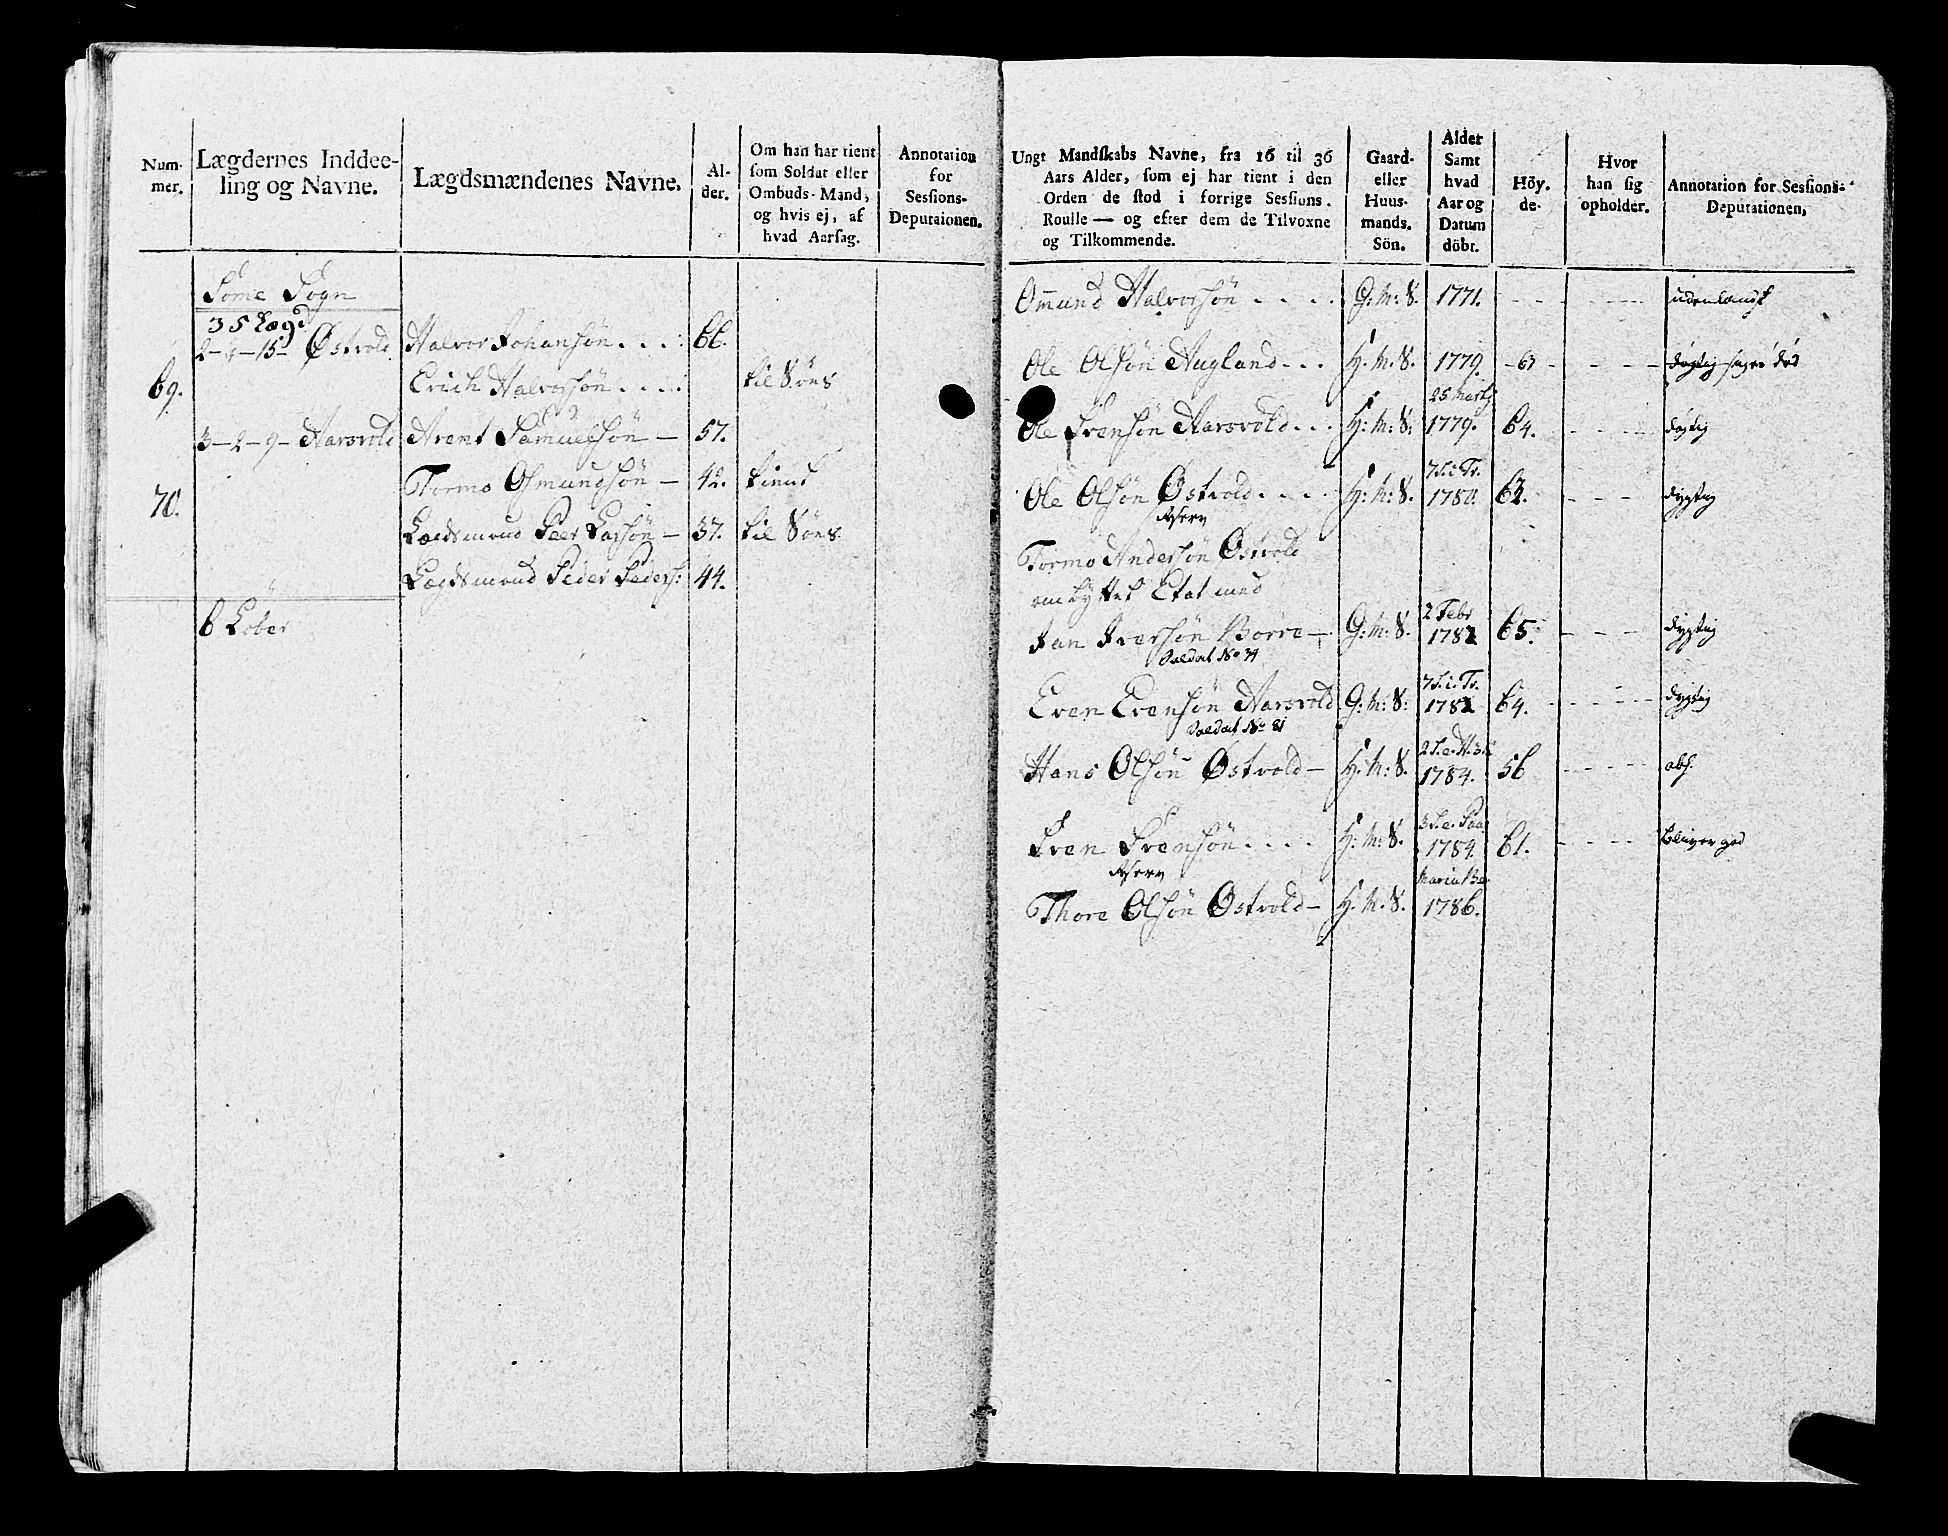 Num-
mer.
Lægdernes Inddee-
ling og Navne.
Lægdsmændenes Navne.
Al-
der.
Om han har tient
som Soldat eller
Ombuds-Mand,
og hvis ej, af
hvad Aarsag.
Annotation
for
Sessions-
Deputationen.
Some Sogn
35 Lægd
2 - 15 Østvold Halvor Johansøn . . . . 66.
69. Erich Halvorsøn . . . . til Søns
3 - 2 - 9 - Aarsvold Arent Samuelsøn — 57.
70. Tormo Osmundsøn — 42. tient
Lægdsmand Peer Larsøn — 37. til Søns
Lægdsmand Peder Peders: 44.
6 Lober
Ungt Mandskabs Navne, fra 16 til 36
Aars Alder, som ej har tient i den
Orden de stod i forrige Sessions-
Roulle — og efter dem de Tilvoxne
og Tilkommende.
Gaard-
eller
Huus-
mands.
Sön.
Alder
Samt
hvad
Aar og
Datum
döbt.
Höy.
de.
Hvor
han sig
opholder.
Annotation for Sessions-
Deputationen,
Omund Halvorsøn . . . . G: M: S. 1771. - - - udenlandsk
Ole Olsøn Augland . . . H. M. S. 1779. - 63 - - - dygtig
25 Martj
Ole Svensøn Aarsvold . . . H: M: S: 1779. 64. - - - dygtig
7 S. i Tr.
Ole Olsøn Østvold . . . . H: M: S. 1780. 63. - - - dygtig
Reserv
Tormo Andersøn Østvold
ombyttet Etat med
2 Febr
Jan Iversøn Borre — G: M: S. 1782 65. - - - dygtig
Soldat No 34
7 S. i. Tr.
Even Evensøn Aarsvold G: M: S: 1782 64. - - - dygtig
Soldat No 81
Hans Olsøn Østvold — H. M: S. 1784. 56 - - - obs.
3 S. e. Paa
Sven Svensøn . . . . H: M: S. 1784. 61. - - - bliver god
Reserv
Maria Be
Thore Olsøn Østvold — H. M. S. 1786.